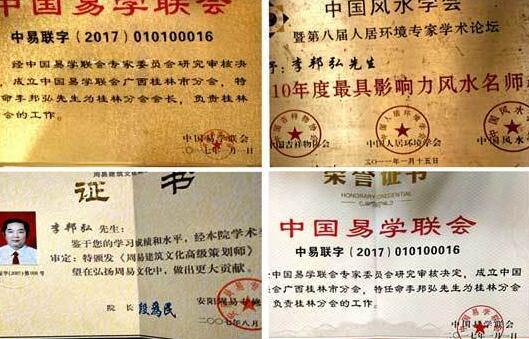 中国易学联会
中易联字（2017）010100016
经中国易学联会专家委员会研究审核决
，成立中国易学联会广西桂林市分会，特
命李邦弘先生为桂林分会会长，负责桂林
会的工作。
中国易学联会
二〇一七年一月一日
中国风水学会
暨第八届人居环境专家学术论坛
李邦弘先生
10年度最具影响力风水名师
中国吉祥物协会
中国人居环境学会
中国风水
二〇一一年一月十五日
周易建筑文
证书
李邦弘 先生：
鉴于您的学习成绩和水平，经本院学术
审定：特颁发《周易建筑文化高级策划师》
望在弘扬周易文化中，做出更大贡献。
院长 段为民
安阳周易专修
二〇〇七年八月
荣誉证书
HONORARY CREDENTIAL
中国易学联会
中易联字（2017）010100016
中国易学联会专家委员会研究审核决定，成立中国
会广西桂林市分会，特任命李邦弘先生为桂林分会
负责桂林分会的工作。
中国易学联会
二〇一七年一月一日